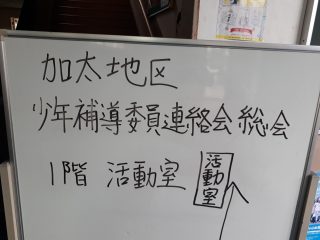 加太地区
少年補導委員連絡会総会
1階 活動室
活動室